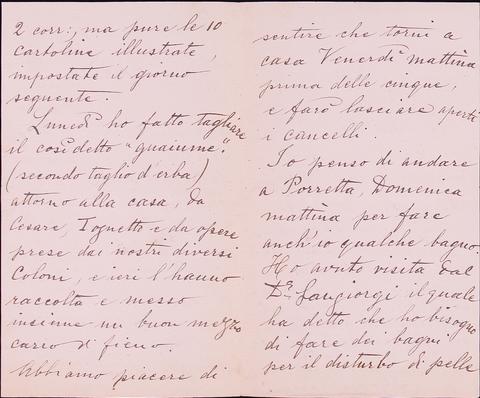 2 corr:, ma pure le 10
cartoline illustrate,
impostate il giorno
seguente.
Lunedì ho fatto tagliare
il così detto "guaiume".
(secondo taglio d'erba)
attorno alla casa, da
Cesare, Tognetti e da opere
prese dai nostri diversi
Coloni, e ieri l'hanno
raccolta e messo
insieme un buon mezzo
carro di fieno.
Abbiamo piacere di
sentire che torni a
casa Venerdì mattina
prima delle cinque,
e farò lasciare aperti
i cancelli.
Io penso di andare
a Porretta, Domenica
mattina per fare
anch'io qualche bagno.
Ho avuto visita dal
Dr. Sangiorgi il quale
ha detto che ho bisogno
di fare dei bagni
per il disturbo di pelle